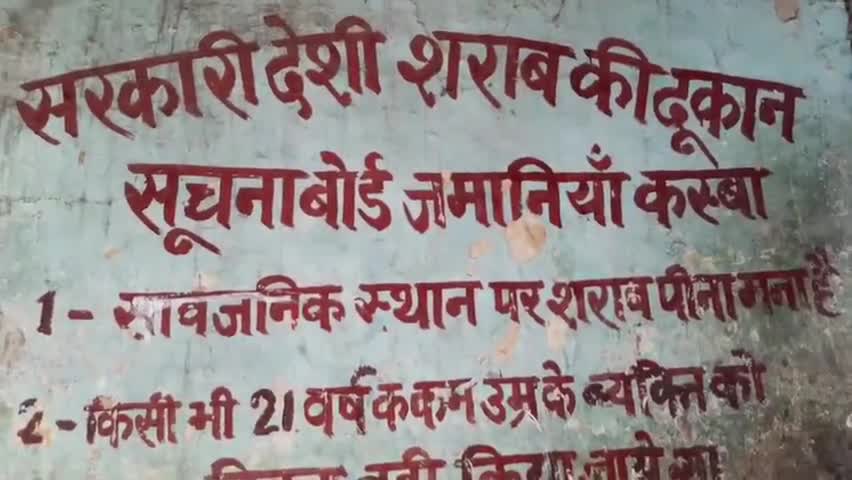 सरकारी देशी शराब की दूकान
सूचना बोर्ड जमानियाँ कस्बा
1 - सावजनिक स्थान पर शराब पीना मना है
2 - किसी भी 21 वर्ष क कम उम्र के व्यक्ति को
नही किया जाये गा